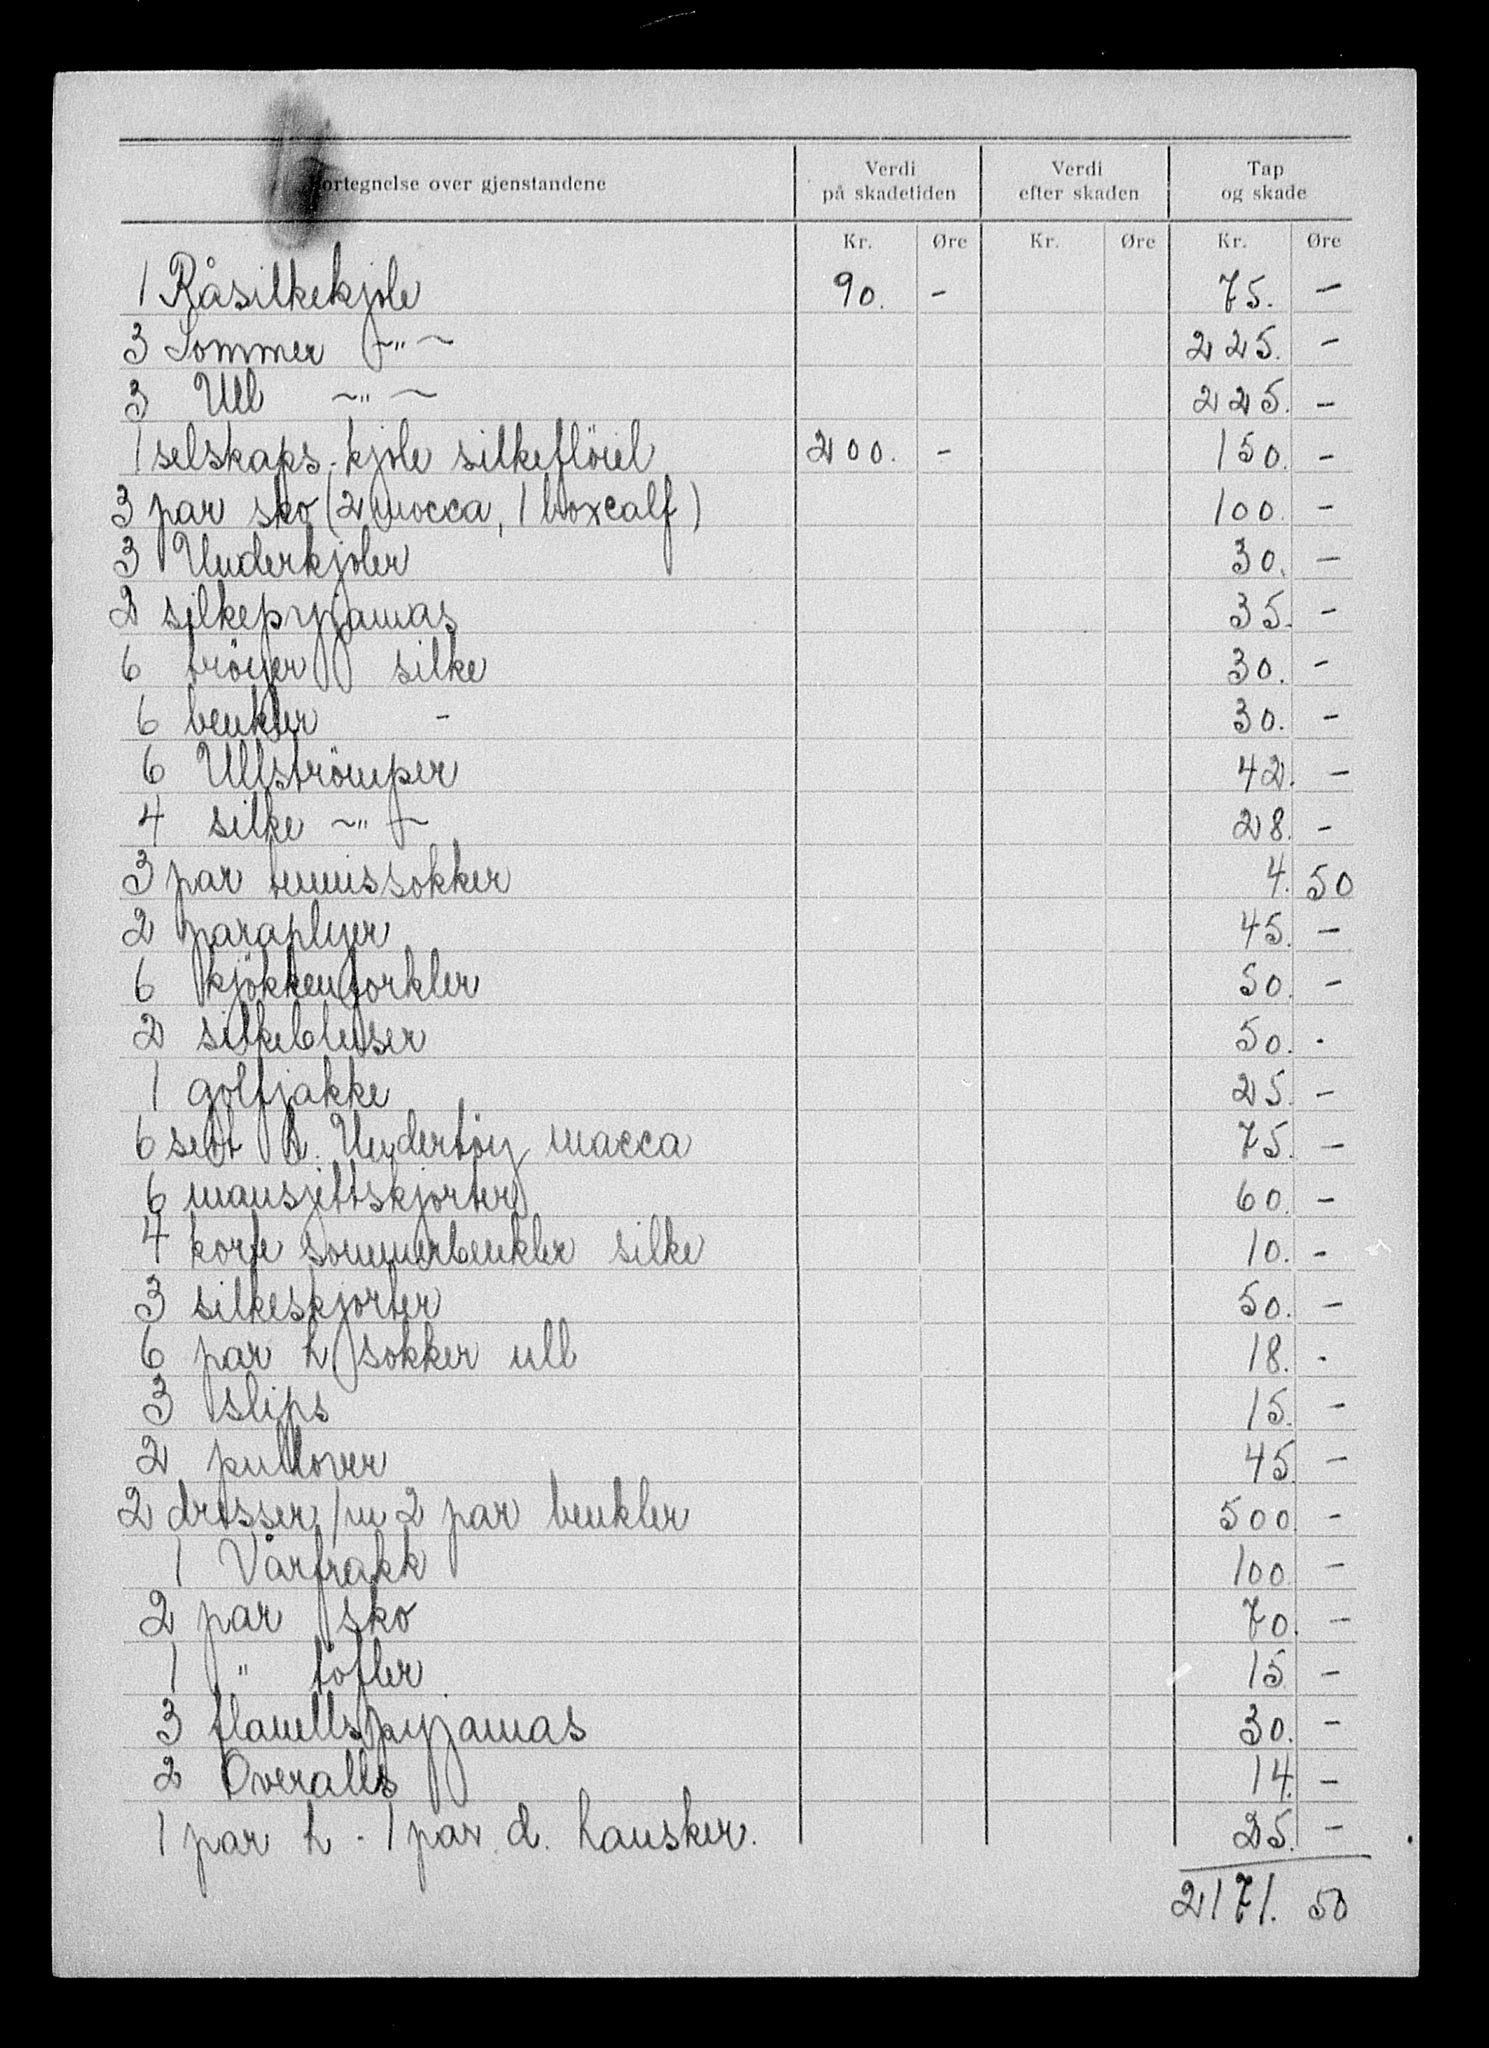 Fortegnelse over gjenstandene Verdi på skadetiden Verdi efter skaden Tap og skade
Kr. Øre Kr. Øre Kr. Øre
1 Råsilkekjole 90. - 75. -
3 Sommer ~"~ 225. -
3 Ull ~"~ 225. -
1 selskaps-kjole silkefløiel 200. - 150. -
3 par sko (2 mocca, 1 boxcalf) 100. -
3 Underkjoler 30. -
2 silkepyjamas 35. -
6 tröyer silke 30. -
6 benkler - 30. -
6 Ullströmper 42. -
4 silke ~"~ 28. -
3 par tennissokker 4. 50
2 paraplyer 45. -
6 kjökkenforkler 50. -
2 silkebluser 50. .
1 golfjakke 25. -
6 sett h. Undertöy macca 75. -
6 mansjettskjorter 60. -
4 korte sommerbenkler silke 10. -
3 silkeskjorter 50. -
6 par h. sokker ull 18. .
3 slips 15. -
2 pullover 45 -
2 dresser /m 2 par benkler 500 -
1 Vårfrakk 100 -
2 par sko 70. -
1 " töfler 15 -
3 flanellspyjamas 30. -
2 Overalls 14. -
1 par h - 1 par d. hansker. 25. -
2171. 50